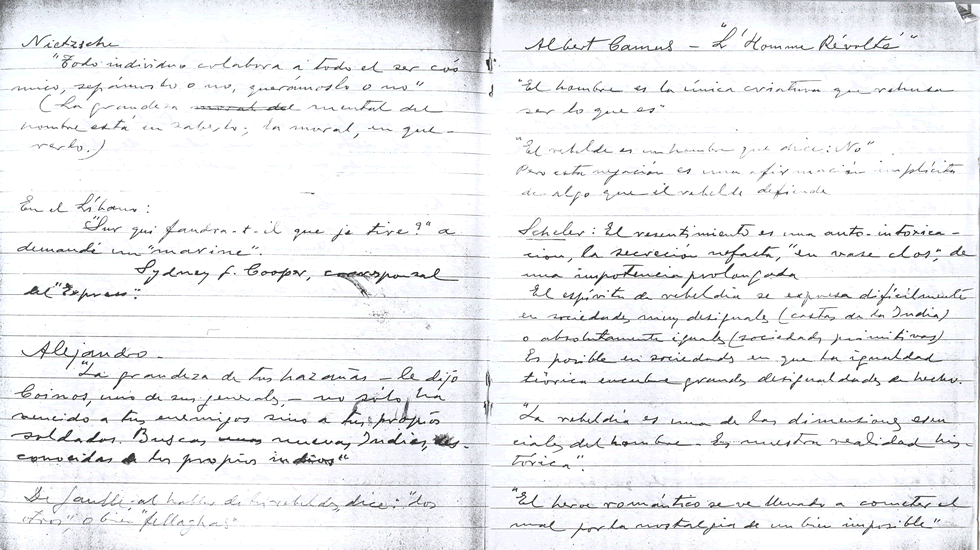 Nietzsche
"Todo individuo colabora a todo el ser cós
mico, sepámoslo o no, querámoslo o no"
(La grandeza moral del mental del
hombre está en saberlo; la moral, en que-
rerlo.)
En el Líbano:
"Sur qui faudra-t-il que je tire?" a
demandé un "marine"
Sydney F. Cooper, corresponsal
del "Express".
Alejandro.
"La grandeza de tus hazañas - le dijo
Coinos, uno de sus generales, - no sólo ha
vencido a tus enemigos sino a tus propios
soldados. Buscas unas nuevas Indias, des-
conocidas a los propios indios"
De Gaulle al hablar de los rebeldes, dice: "los
otros", o bien "fellaghas"
Albert Camus - "L'Homme Révolté"
"El hombre es la única criatura que rehusa
ser lo que es"
"El rebelde es un hombre que dice: No"
Pero esta negación es una afirmación implícita
de algo que el rebelde defiende
Scheler: El resentimiento es una auto-intoxica-
ción, la secreción nefasta, "en vase clos", de
una impotencia prolongada
El espíritu de rebeldía se expresa difícilmente
en sociedades muy desiguales (castas de la India)
o absolutamente iguales (sociedades primitivas)
Es posible en sociedades en que la igualdad
teórica encubre grandes desigualdades de hecho.
"La rebeldía es una de las dimensiones esen
ciales del hombre. Es nuestra realidad his-
tórica".
"El heroe romántico se ve llevado a cometer el
mal por la nostalgia de un bien imposible"